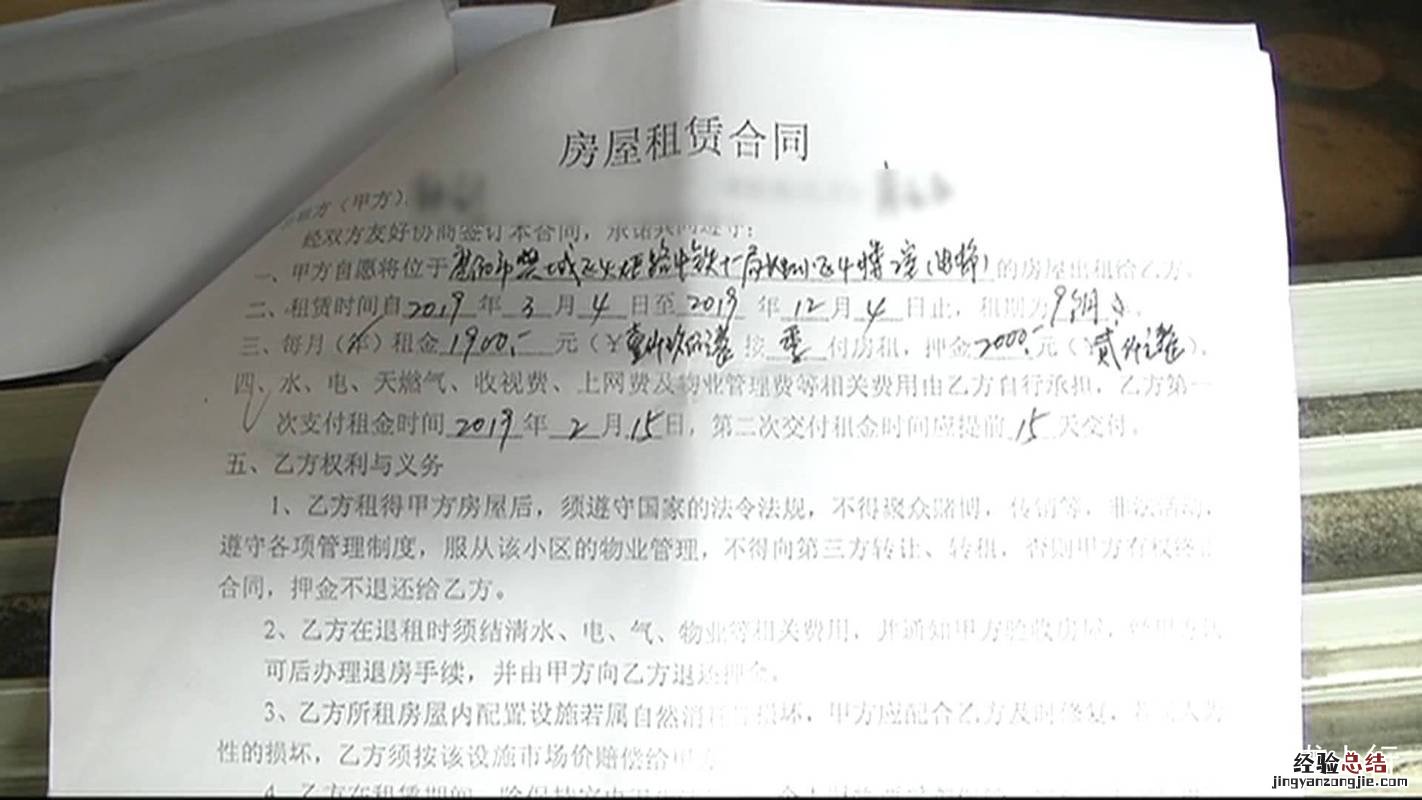 房屋租赁合同
方（甲方）
经双方友好协商签订本合同，承诺共同遵守：
一、甲方自愿将位于 市 城 路中铁十一局 小区 楼 室 的房屋出租给乙方。
二、租赁时间自2019年3月4日至2019年12月4日止，租期为9个月。
三、每月（年）租金1900.-元（￥壹仟玖佰 按季付房租，押金2000.-元（￥贰仟 ）。
四、水、电、天燃气、收视费、上网费及物业管理费等相关费用由乙方自行承担，乙方第一
次支付租金时间2019年2月15日，第二次交付租金时间应提前15天交付。
五、乙方权利与义务
1、乙方租得甲方房屋后，须遵守国家的法令法规，不得聚众赌博，传销等，非法活动，
遵守各项管理制度，服从该小区的物业管理，不得向第三方转让、转租，否则甲方有权终止
合同，押金不退还给乙方。
2、乙方在退租时须结清水、电、气、物业等相关费用，并通知甲方验收房屋，经甲方认
可后办理退房手续，并由甲方向乙方退还押金。
3、乙方所租房屋内配置设施若属自然消耗性损坏，甲方应配合乙方及时修复，若 人为
性的损坏，乙方须按该设施市场价赔偿给甲方
4、乙方在租赁期间，除保持室内
经验总结
jingyanzongjie.com